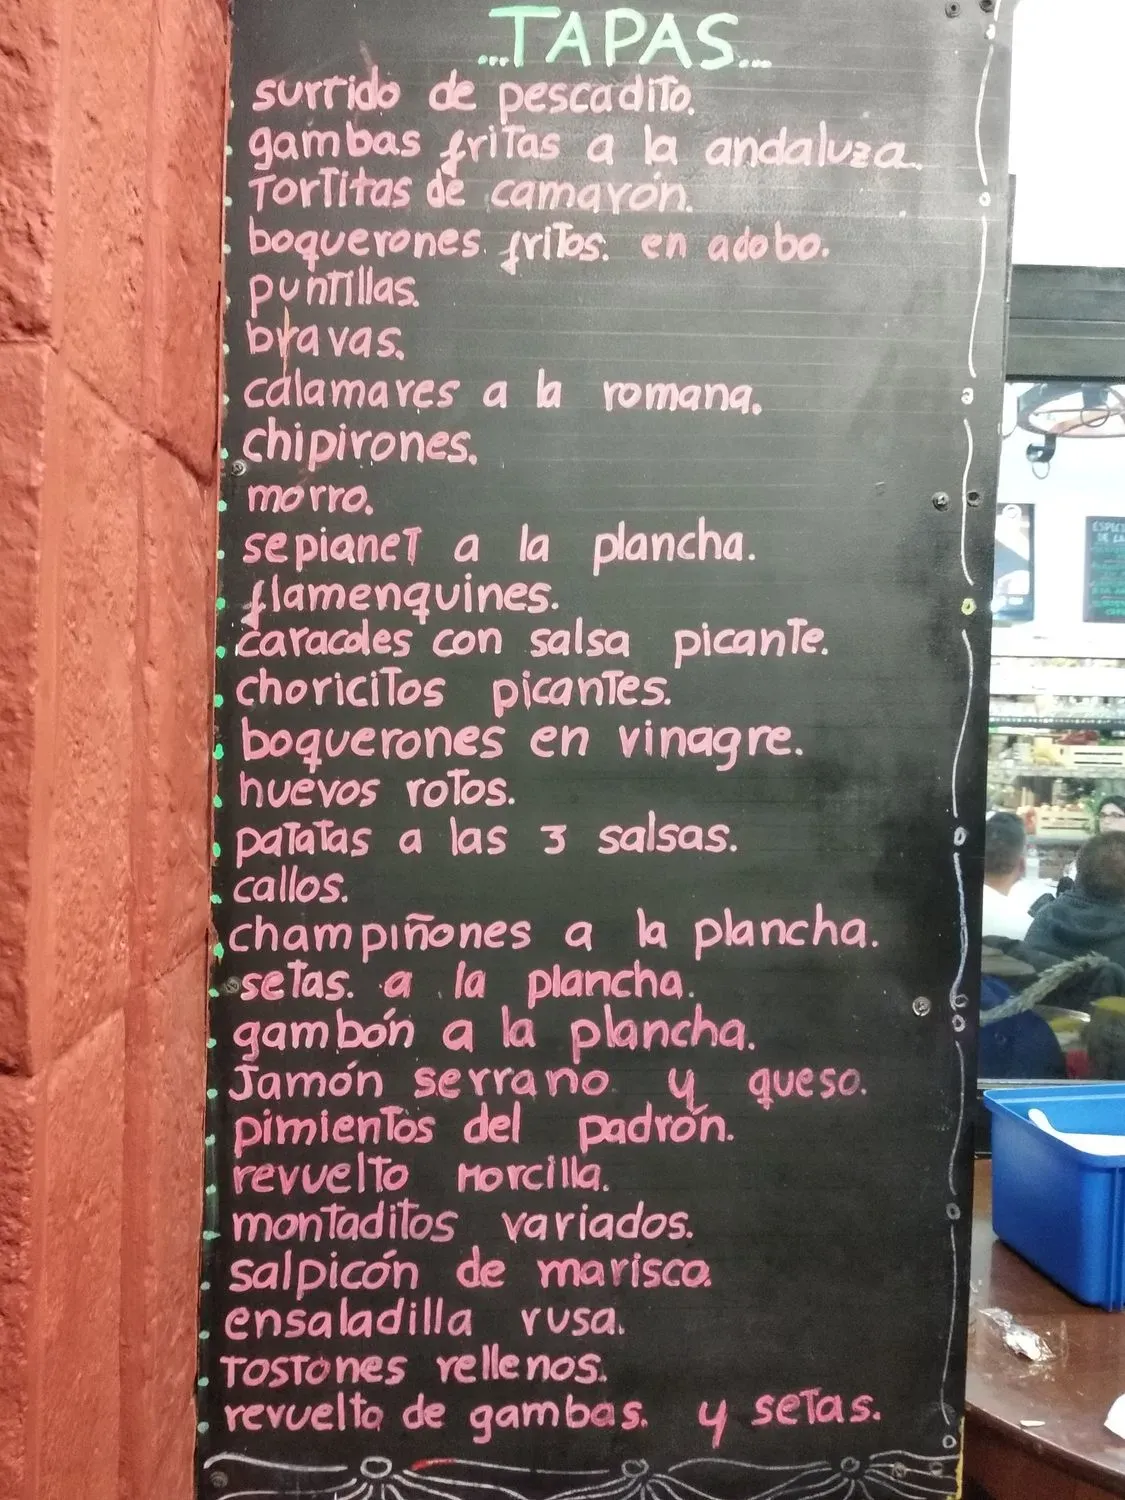 ...TAPAS...
surtido de pescadito.
gambas fritas a la andaluza.
Tortitas de camarón.
boquerones fritos. en adobo.
puntillas.
bravas.
calamares a la romana.
chipirones.
morro.
sepianet a la plancha.
flamenquines.
caracoles con salsa picante.
choricitos picantes.
boquerones en vinagre.
huevos rotos.
patatas a las 3 salsas.
callos.
champiñones a la plancha.
setas. a la plancha.
gambón a la plancha.
Jamón serrano y queso.
pimientos del padrón.
revuelto Morcilla.
montaditos variados.
salpicón de marisco.
ensaladilla rusa.
Tostones rellenos.
revuelto de gambas. y setas.